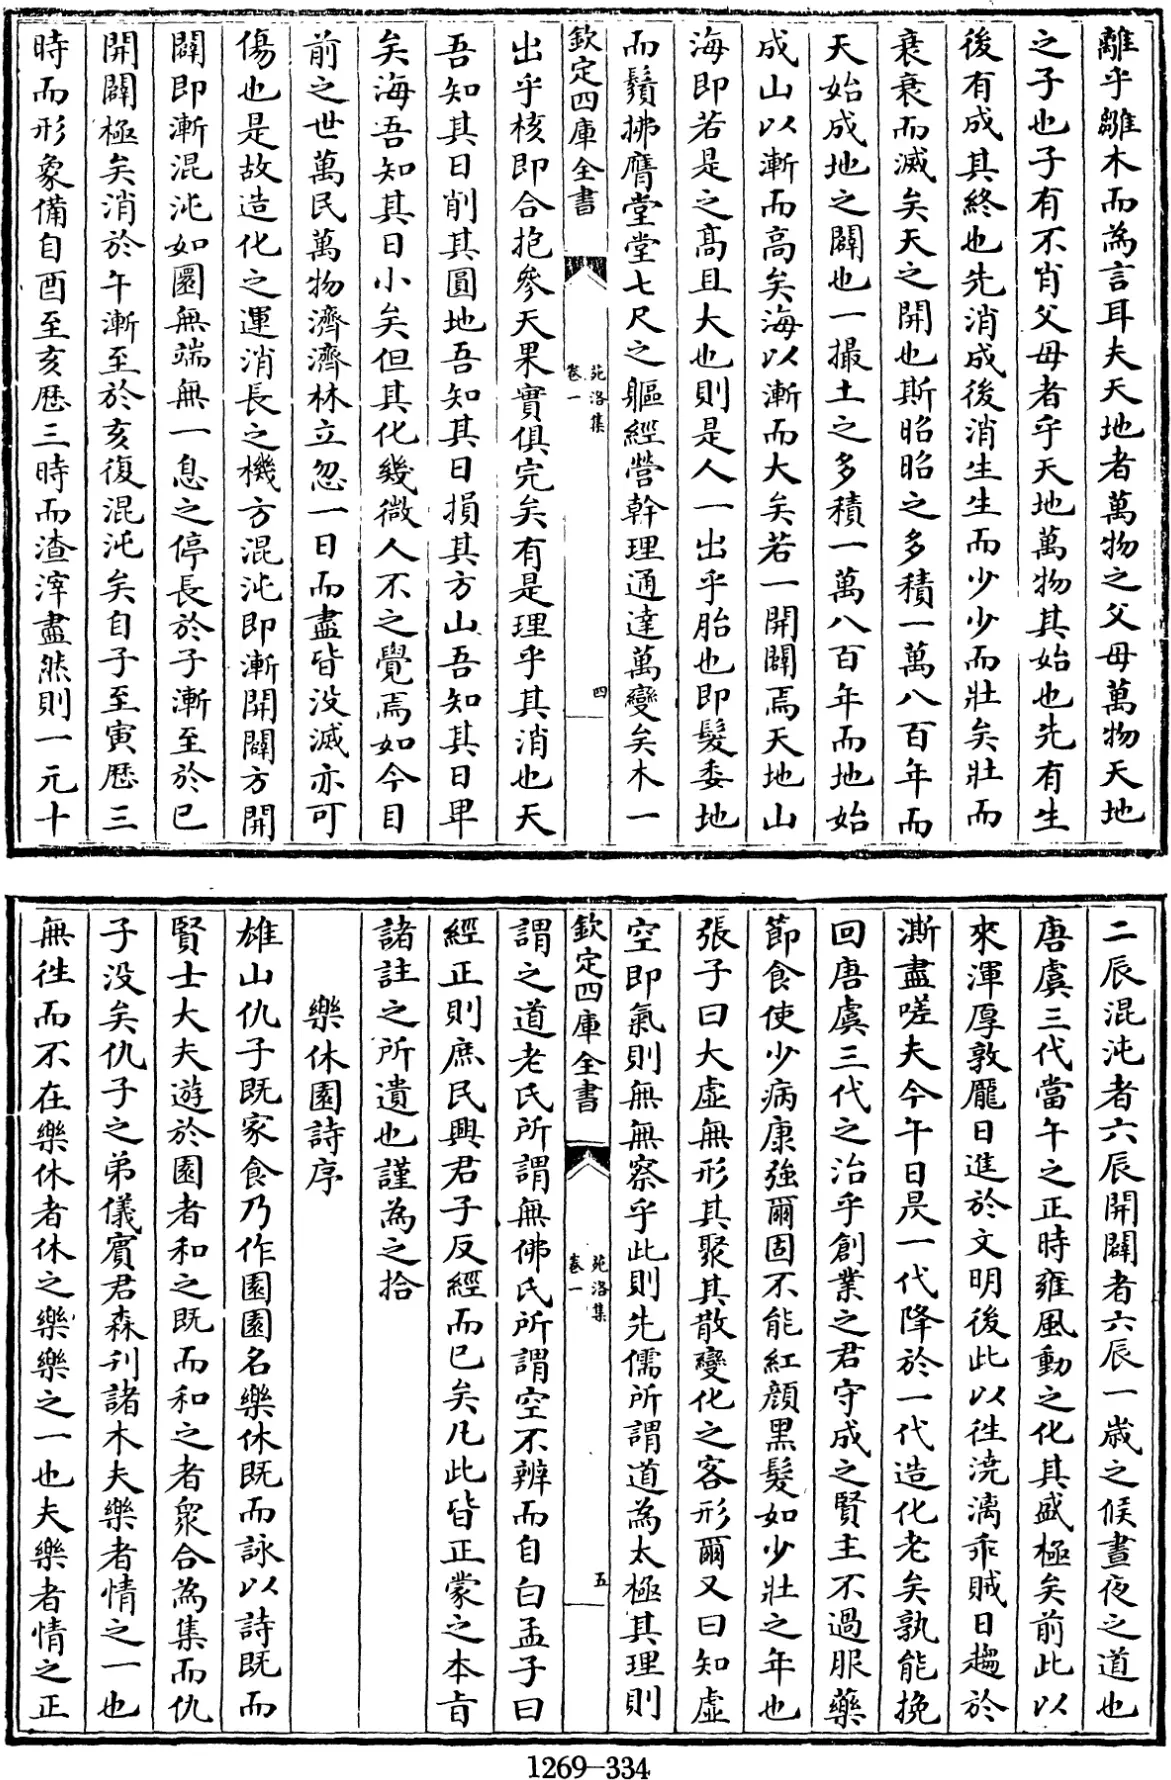 離乎離木而為言耳夫天地者萬物之父母萬物天地
之子也子有不肖父母者乎天地萬物其始也先有生
後有成其終也先消成後消生生而少少而壯矣壯而
衰衰而滅矣天之開也斯昭昭之多積一萬八百年而
天始成地之闢也一撮土之多積一萬八百年而地始
成山以漸而高矣海以漸而大矣若一開闢焉天地山
海即若是之髙且大也則是人一出乎胎也即髮委地
而鬚拂膺堂堂七尺之軀經營幹理通達萬變矣木一
欽定四庫全書
苑洛集
卷一
四
出乎核即合抱參天果實俱完矣有是理乎其消也天
吾知其日削其圓地吾知其日損其方山吾知其日卑
矣海吾知其日小矣但其化幾微人不之覺焉如今目
前之世萬民萬物濟濟林立忽一日而盡皆没滅亦可
傷也是故造化之運消長之機方混沌即漸開闢方開
闢即漸混沌如圜無端無一息之停長於子漸至於巳
開闢極矣消於午漸至於亥復混沌矣自子至寅歴三
時而形象備自酉至亥歴三時而渣滓盡然則一元十
二辰混沌者六辰開闢者六辰一歳之候晝夜之道也
唐虞三代當午之正時雍風動之化其盛極矣前此以
來渾厚敦龎日進於文明後此以徃澆漓乖賊日趨於
澌盡嗟夫今午日昃一代降於一代造化老矣孰能挽
回唐虞三代之治乎創業之君守成之賢主不過服藥
節食使少病康強爾固不能紅顔黒髮如少壯之年也
張子曰大虛無形其聚其散變化之客形爾又曰知虛
空即氣則無無察乎此則先儒所謂道為太極其理則
欽定四庫全書
苑洛集
卷一
五
謂之道老氏所謂無佛氏所謂空不辨而自白孟子曰
經正則庶民興君子反經而已矣凡此皆正蒙之本㫖
諸註之所遺也謹為之拾
樂休園詩序
雄山仇子既家食乃作園園名樂休既而詠以詩既而
賢士大夫遊於園者和之既而和之者衆合為集而仇
子没矣仇子之弟儀賓君森刋諸木夫樂者情之一也
無徃而不在樂休者休之樂樂之一也夫樂者情之正
1269—334